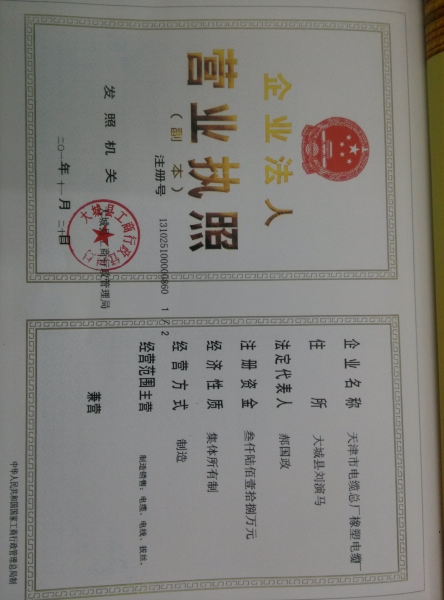 企业法人
营业执照
（副本）
注册号 131025100000860 1/2
发照机关
大城县工商行政管理局
二〇一〇年十一月二十日
企业名称 天津市电缆总厂橡塑电缆厂
住所 大城县刘演马
法定代表人 郝国政
注册资金 叁仟陆佰壹拾捌万元
经济性质 集体所有制
经营方式 制造
经营范围主营 制造销售：电缆、电线、拔丝。
兼营
中华人民共和国国家工商行政管理总局制